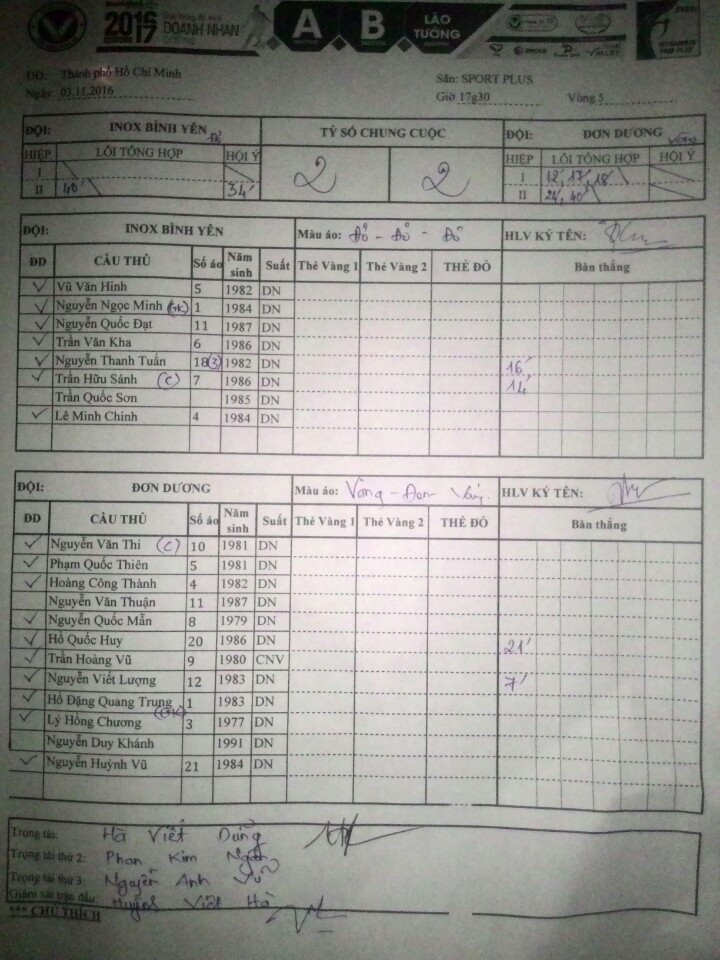 2016
2017
DOANH NHÂN
A B LÃO TƯỚNG
ĐĐ. Thành phố Hồ Chí Minh Sân: SPORT PLUS
Ngày 03.11.2016 Giờ 17g30 Vòng 5
ĐỘI: INOX BÌNH YÊN Đỏ TỶ SỐ CHUNG CUỘC ĐỘI: ĐƠN DƯƠNG Vàng
HIỆP LỖI TỔNG HỢP HỘI Ý 2 2 HIỆP LỖI TỔNG HỢP HỘI Ý
I I 12', 17', 18'
II 40' 34' II 24', 40'
ĐỘI: INOX BÌNH YÊN Màu áo: Đỏ - Đỏ - Đỏ HLV KÝ TÊN:
ĐD CẦU THỦ Số áo Năm sinh Suất Thẻ Vàng 1 Thẻ Vàng 2 THẺ ĐỎ Bàn thắng
Vũ Văn Hinh 5 1982 DN
Nguyễn Ngọc Minh (GK) 1 1984 DN
Nguyễn Quốc Đạt 11 1987 DN
Trần Văn Kha 6 1986 DN
Nguyễn Thanh Tuấn 18 (3) 1982 DN 16'
Trần Hữu Sánh (C) 7 1986 DN 14'
Trần Quốc Sơn 1985 DN
Lê Minh Chinh 4 1984 DN
ĐỘI: ĐƠN DƯƠNG Màu áo: Vàng - Đen HLV KÝ TÊN:
ĐD CẦU THỦ Số áo Năm sinh Suất Thẻ Vàng 1 Thẻ Vàng 2 THẺ ĐỎ Bàn thắng
Nguyễn Văn Thi (C) 10 1981 DN
Phạm Quốc Thiên 5 1981 DN
Hoàng Công Thành 4 1982 DN
Nguyễn Văn Thuận 11 1987 DN
Nguyễn Quốc Mẫn 8 1979 DN
Hồ Quốc Huy 20 1986 DN 21'
Trần Hoàng Vũ 9 1980 CNV
Nguyễn Viết Lượng 12 1983 DN 7'
Hồ Đặng Quang Trung (GK) 1 1983 DN
Lý Hồng Chương 3 1977 DN
Nguyễn Duy Khánh 1991 DN
Nguyễn Huỳnh Vũ 21 1984 DN
Trọng tài: Hà Viết Dũng
Trọng tài thứ 2: Phan Kim Ngân
Trọng tài thứ 3: Nguyễn Anh Vũ
Giám sát trận đấu: Huỳnh Viết Hà
*** CHÚ THÍCH